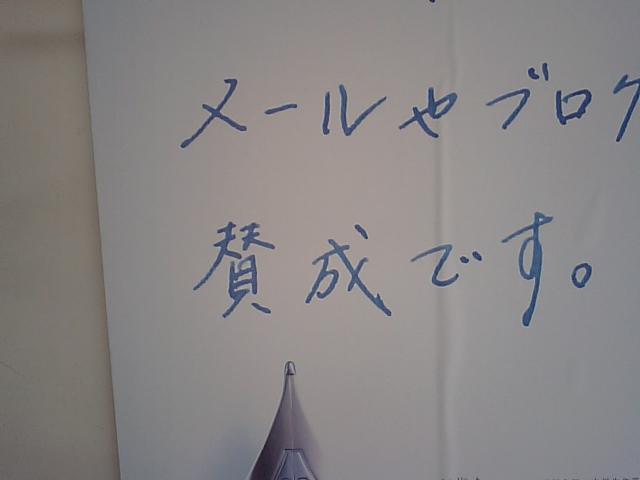 メールやブログ
賛成です。